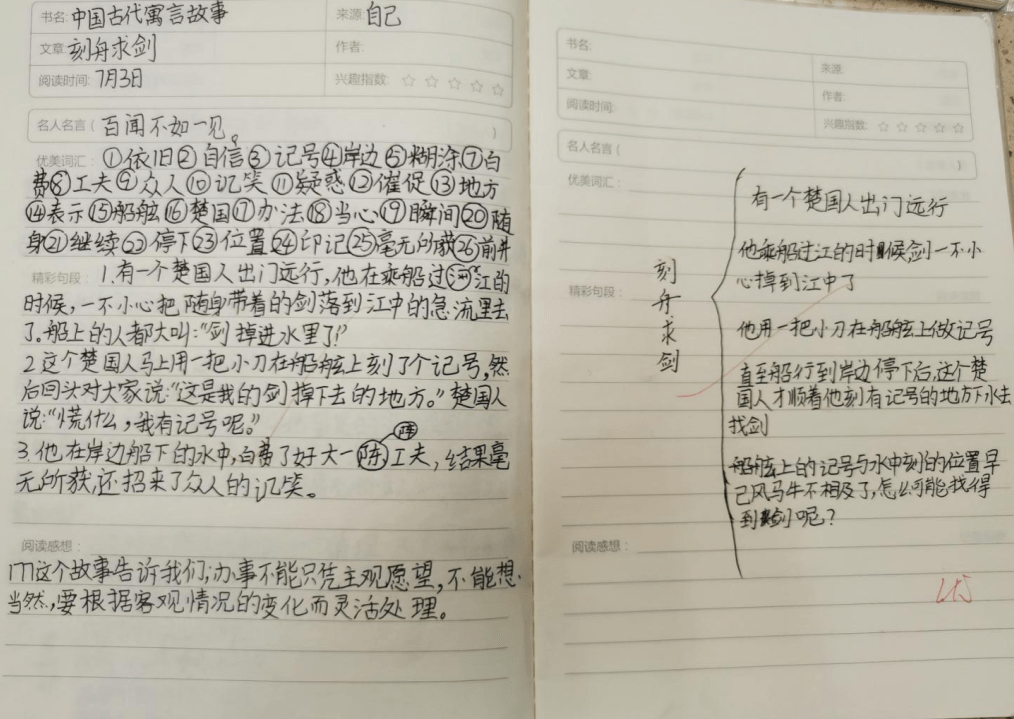 书名: 中国古代寓言故事 来源: 自己
文章: 刻舟求剑 作者:
阅读时间: 7月3日 兴趣指数: ☆ ☆ ☆ ☆ ☆
名人名言( 百闻不如一见。 )
优美词汇: ①依旧②自信③记号④岸边⑤糊涂⑦白
费⑧工夫⑨众人⑩讥笑⑪疑惑⑫催促⑬地方
⑭表示⑮船舷⑯楚国⑰办法⑱当心⑲瞬间⑳随
身㉑继续㉒停下㉓位置㉔印记㉕毫无所获㉖前
精彩句段: 1.有一个楚国人出门远行,他在乘船过江的
时候,一不小心把随身带着的剑落到江中的急流里去
了。船上的人都大叫:“剑掉进水里了!”
2.这个楚国人马上用一把小刀在船舷上刻了个记号,然
后回头对大家说:“这是我的剑掉下去的地方。”楚国人
说:“慌什么,我有记号呢。”
3.他在岸边船下的水中,白费了好大一阵工夫,结果毫
无所获,还招来了众人的讥笑。
阅读感想:
这个故事告诉我们,办事不能只凭主观愿望,不能想
当然,要根据客观情况的变化而灵活处理。
书名: 来源:
文章: 作者:
阅读时间: 兴趣指数: ☆ ☆ ☆ ☆ ☆
名人名言( )
优美词汇:
精彩句段:
阅读感想:
刻舟求剑
有一个楚国人出门远行
他乘船过江的时候剑一不小
心掉到江中了
他用一把小刀在船舷上做记号
直至船行到岸边停下后,这个楚
国人才顺着他刻有记号的地方下水去
找剑
船舷上的记号与水中刻的位置早
已风马牛不相及了,怎么可能找得
到剑呢?